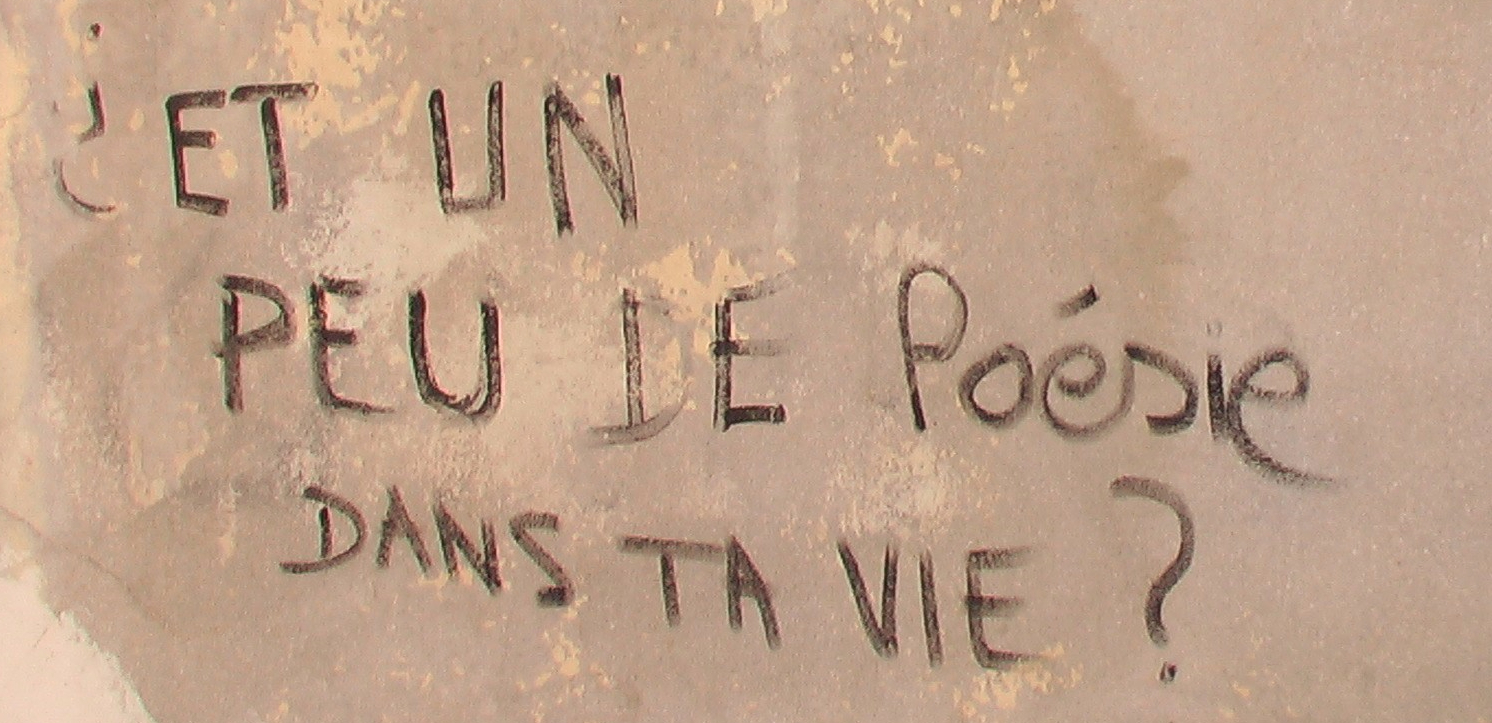 ¿ET UN
PEU DE Poésie
DANS TA VIE ?